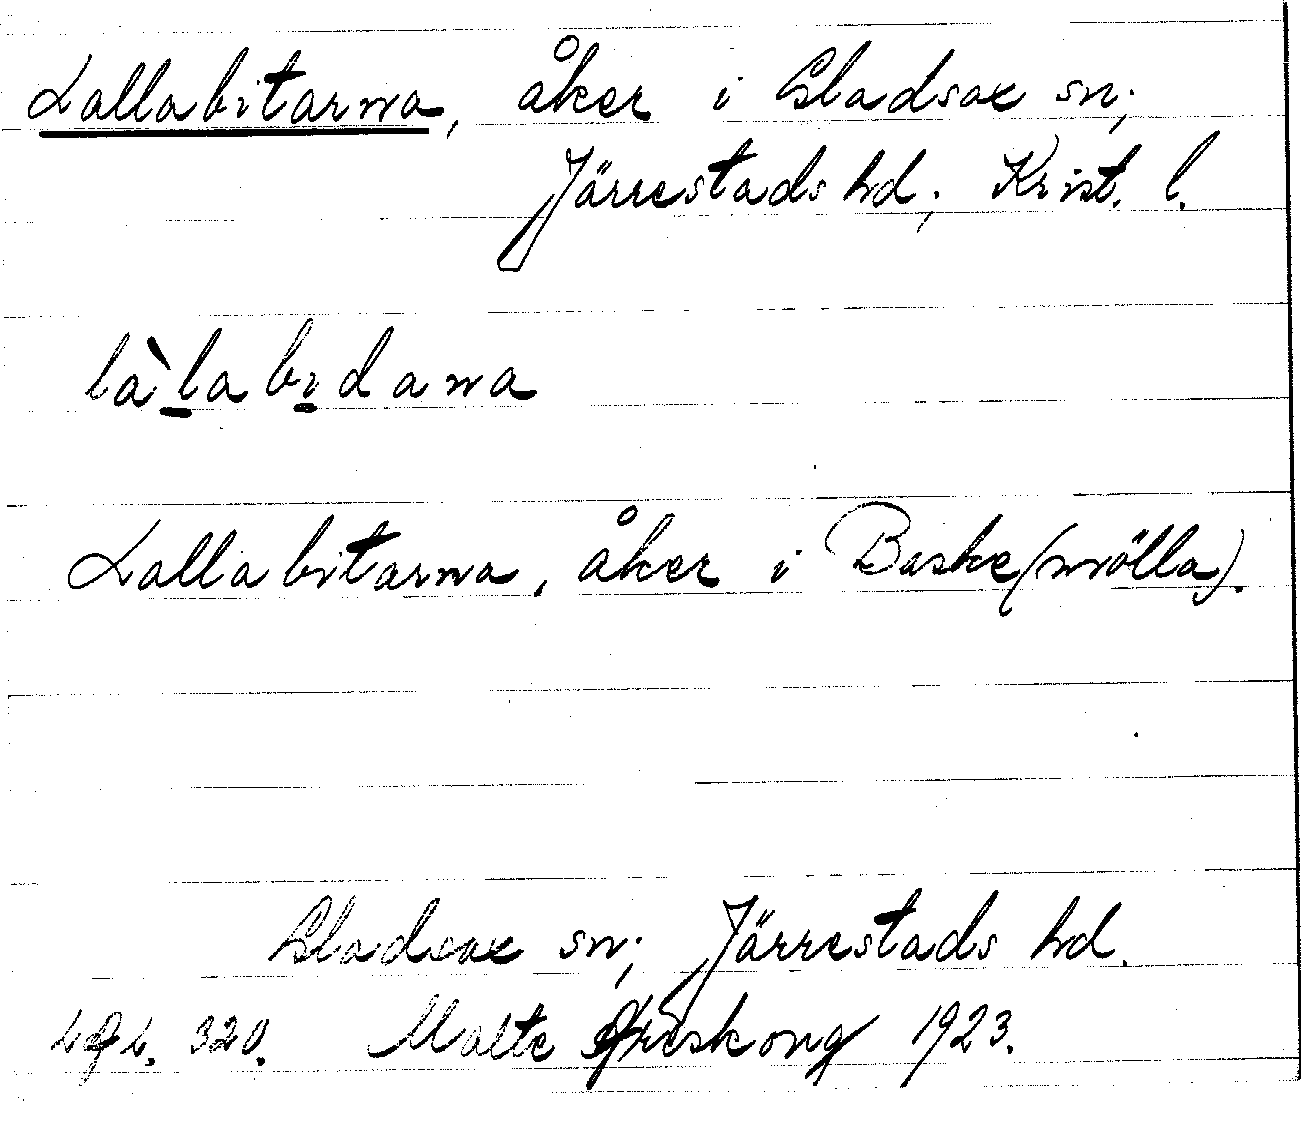 Lallabitarna, åker i Gladsax sn;
Järrestads hd; Krist. l.
là`labidarna
Lallabitarna, åker i Baske(mölla).
Gladsax sn; Järrestads hd.
320. Malte 1923.